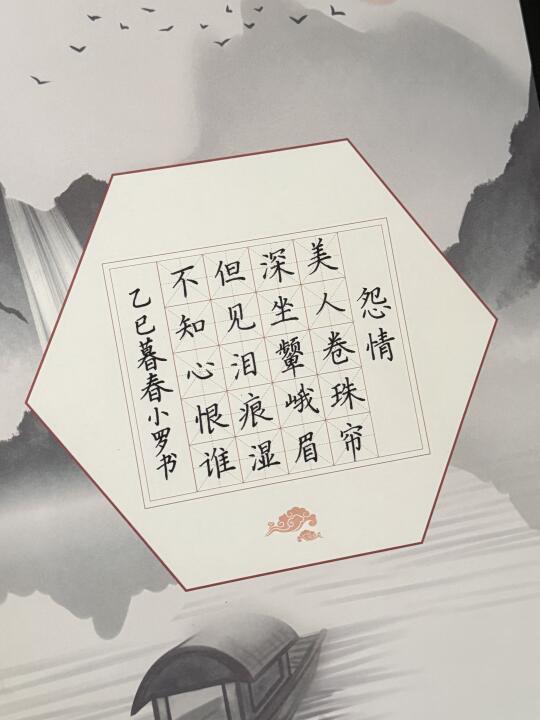 怨情
美人卷珠帘
深坐颦峨眉
但见泪痕湿
不知心恨谁
乙巳暮春小罗书